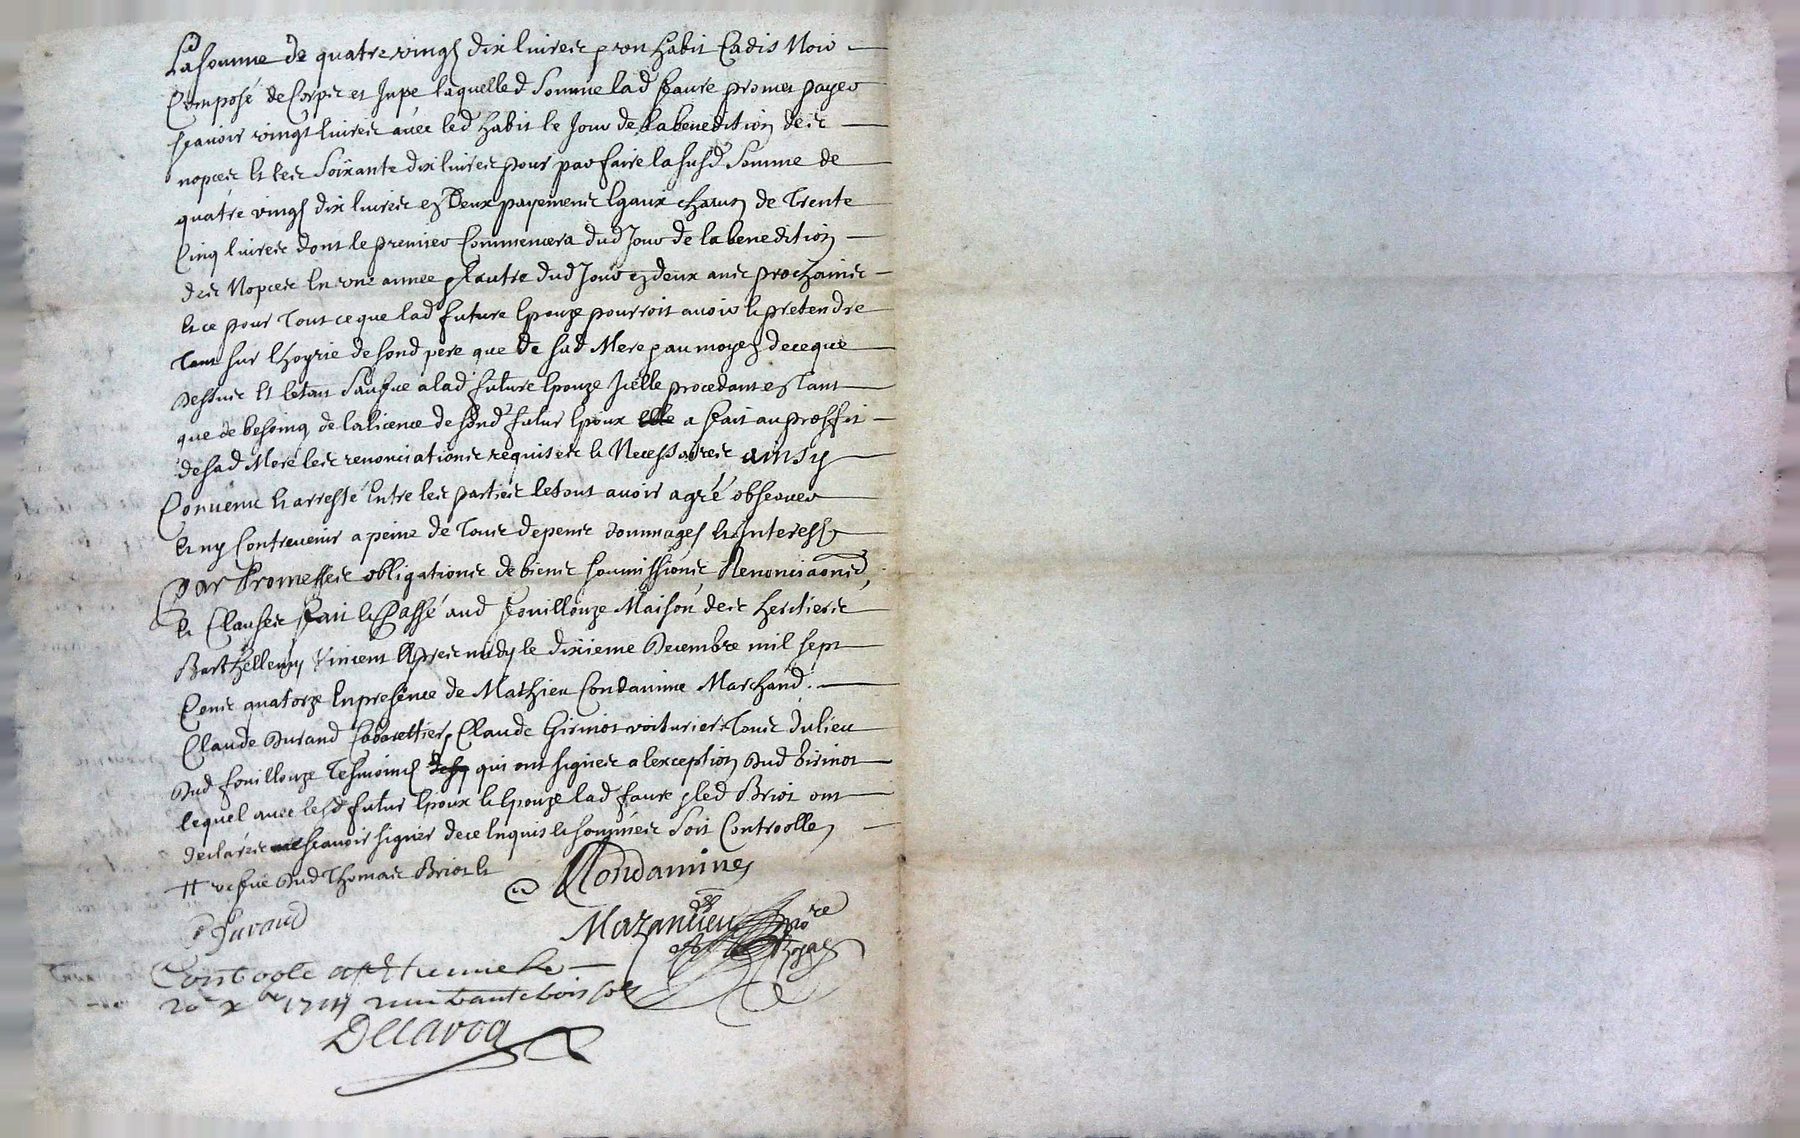 La somme de quatre vingt dix livres & un habit Cadis Noir
Composé de Corps et Jupe laquelled somme lad faure promet payer
scavoir vingt livres avec led habit le Jour de la benedition des
nopces et les soixante dix livres pour parfaire la susd somme de
quatre vingt dix livres en Deux payements Egaux chacun de Trente
Cinq livres dont le premier Commencera dud Jour de la benedition
des Nopces En une année & l'autre dud Jour en deux ans prochains
Et ce pour Tout ce que lad future Epouze pourroit avoir & pretendre
Tant sur l'hoyrie de sond pere que de sad Mere & au moyen de ce que
Dessus Et Estant a lad future Epouze Icelle procedant en Tant
que de besoing de la licence de sond futur Epoux a fait au proffit
de sad Mere les renonciations requises & Necessaires ainsy
Convenu & arresté Entre les parties le tout avoir agré observer
Et ny Contrevenir a peine de Tous depens dommages & Interests
par Promesses obligations de biens soumissions Renonciaons
& Clauses fait & Passé aud fouillouze Maison des heritiers
Barthellemy Vincent Apres midy le dixieme Decembre mil sept
Cents quatorze En presence de Mathieu Condamine Marchand
Claude Durand Cabarettier, Claude Girinot voiturier Tous du lieu
Dud fouillouze Tesmoins qui ont signes a lexception Dud Girinot
lequel avec lesd futur Epoux & Epouze lad faure & led Briot ont
declarés ne scavoir signer de ce Enquis & sommés soit Controollé
++ vefve Dud Thomas Briot &
Condamines
Durand
Mazanlieu Nore
Royal
Controlé a St Etienne le
20e xbre 1714
Delaroa